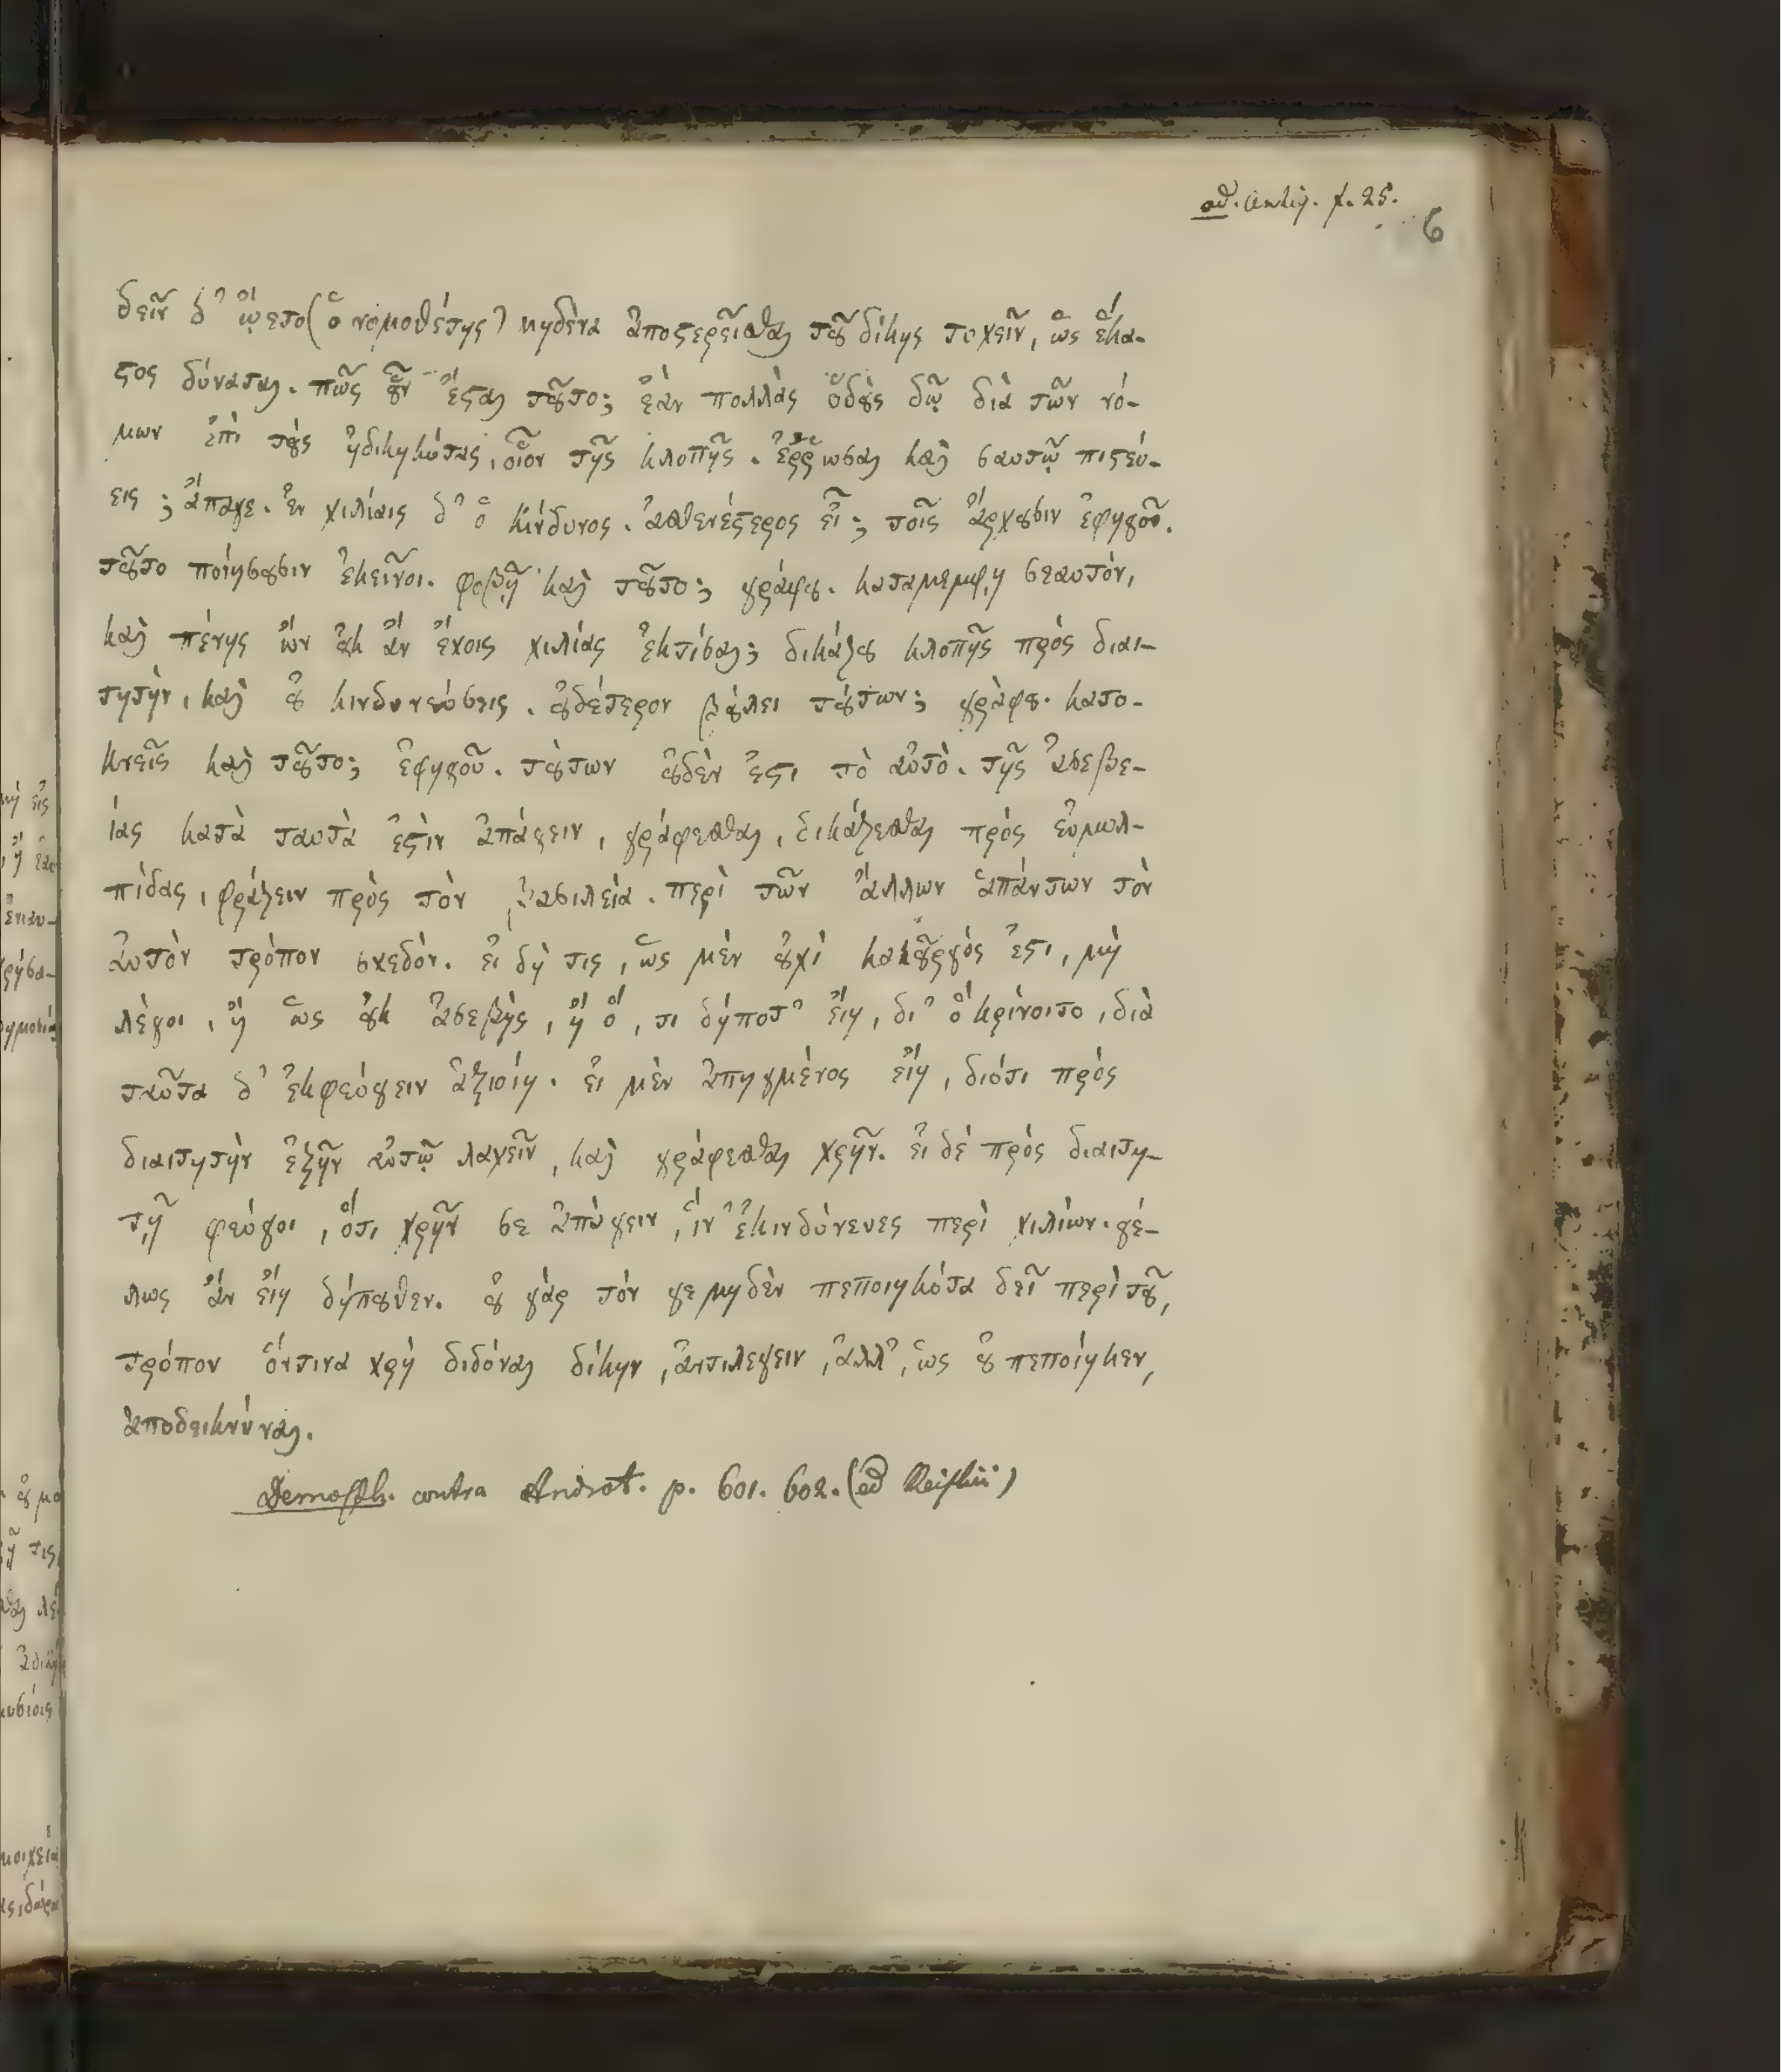 ad. Antiq. f. 25.
6
δεῖν δ᾽ ᾤετο (ὁ νομοθέτης) μηδένα ἀποστερεῖσθαι τοῦ δίκης τυχεῖν, ὡς ἕκα-
στος δύναται. πῶς οὖν ἔσται τοῦτο; ἐὰν πολλὰς ὁδοὺς δῷ διὰ τῶν νό-
μων ἐπὶ τοὺς ἠδικηκότας, οἷον τῆς κλοπῆς. ἔῤῥωσαι καὶ σαυτῷ πιστεύ-
εις; ἄπαγε. ἐν χιλίαις δ᾽ ὁ κίνδυνος. ἀσθενέστερος εἶ; τοῖς ἄρχουσιν ἐφηγοῦ.
τοῦτο ποιήσουσιν ἐκεῖνοι. φοβῇ καὶ τοῦτο; γράφου. καταμέμφῃ σεαυτόν,
καὶ πένης ὢν οὐκ ἂν ἔχοις χιλίας ἐκτίσαι; δικάζου κλοπῆς πρὸς διαι-
τητήν, καὶ οὐ κινδυνεύσεις. οὐδέτερον βούλει τούτων; γράφου. κατο-
κνεῖς καὶ τοῦτο; ἐφηγοῦ. τούτων οὐδέν ἐστι τὸ αὐτό. τῆς ἀσεβε-
ίας κατὰ ταυτὰ ἐστὶν ἀπάγειν, γράφεσθαι, δικάζεσθαι πρὸς εὐμολ-
πίδας, φράζειν πρὸς τὸν βασιλέα. περὶ τῶν ἄλλων ἁπάντων τὸν
αὐτὸν τρόπον σχεδόν. εἰ δή τις, ὡς μὲν οὐχὶ κακοῦργός ἐστι, μὴ
λέγοι, ἢ ὡς οὐκ ἀσεβὴς, ἢ ὅ, τι δήποτ᾽ εἴη, δι᾽ ὃ κρίνοιτο, διὰ
ταῦτα δ᾽ ἐκφεύγειν ἀξιοίη. εἰ μὲν ἀπηγμένος εἴη, διότι πρὸς
διαιτητὴν ἐξῆν αὐτῷ λαχεῖν, καὶ γράφεσθαι χρῆν. εἰ δὲ πρὸς διαιτη-
τῇ φεύγοι, ὅτι χρῆν σε ἀπάγειν, ἵν᾽ ἐκινδύνευες περὶ χιλίων. γέ-
λως ἂν εἴη δήπουθεν. οὐ γὰρ τόν γε μηδὲν πεποιηκότα δεῖ περὶ τοῦ,
τρόπον ὅντινα χρὴ διδόναι δίκην, ἀντιλέγειν, ἀλλ᾽, ὡς οὐ πεποίηκεν,
ἀποδεικνύναι.
Demosth. contra Androt. p. 601. 602. (ed Reiskii)